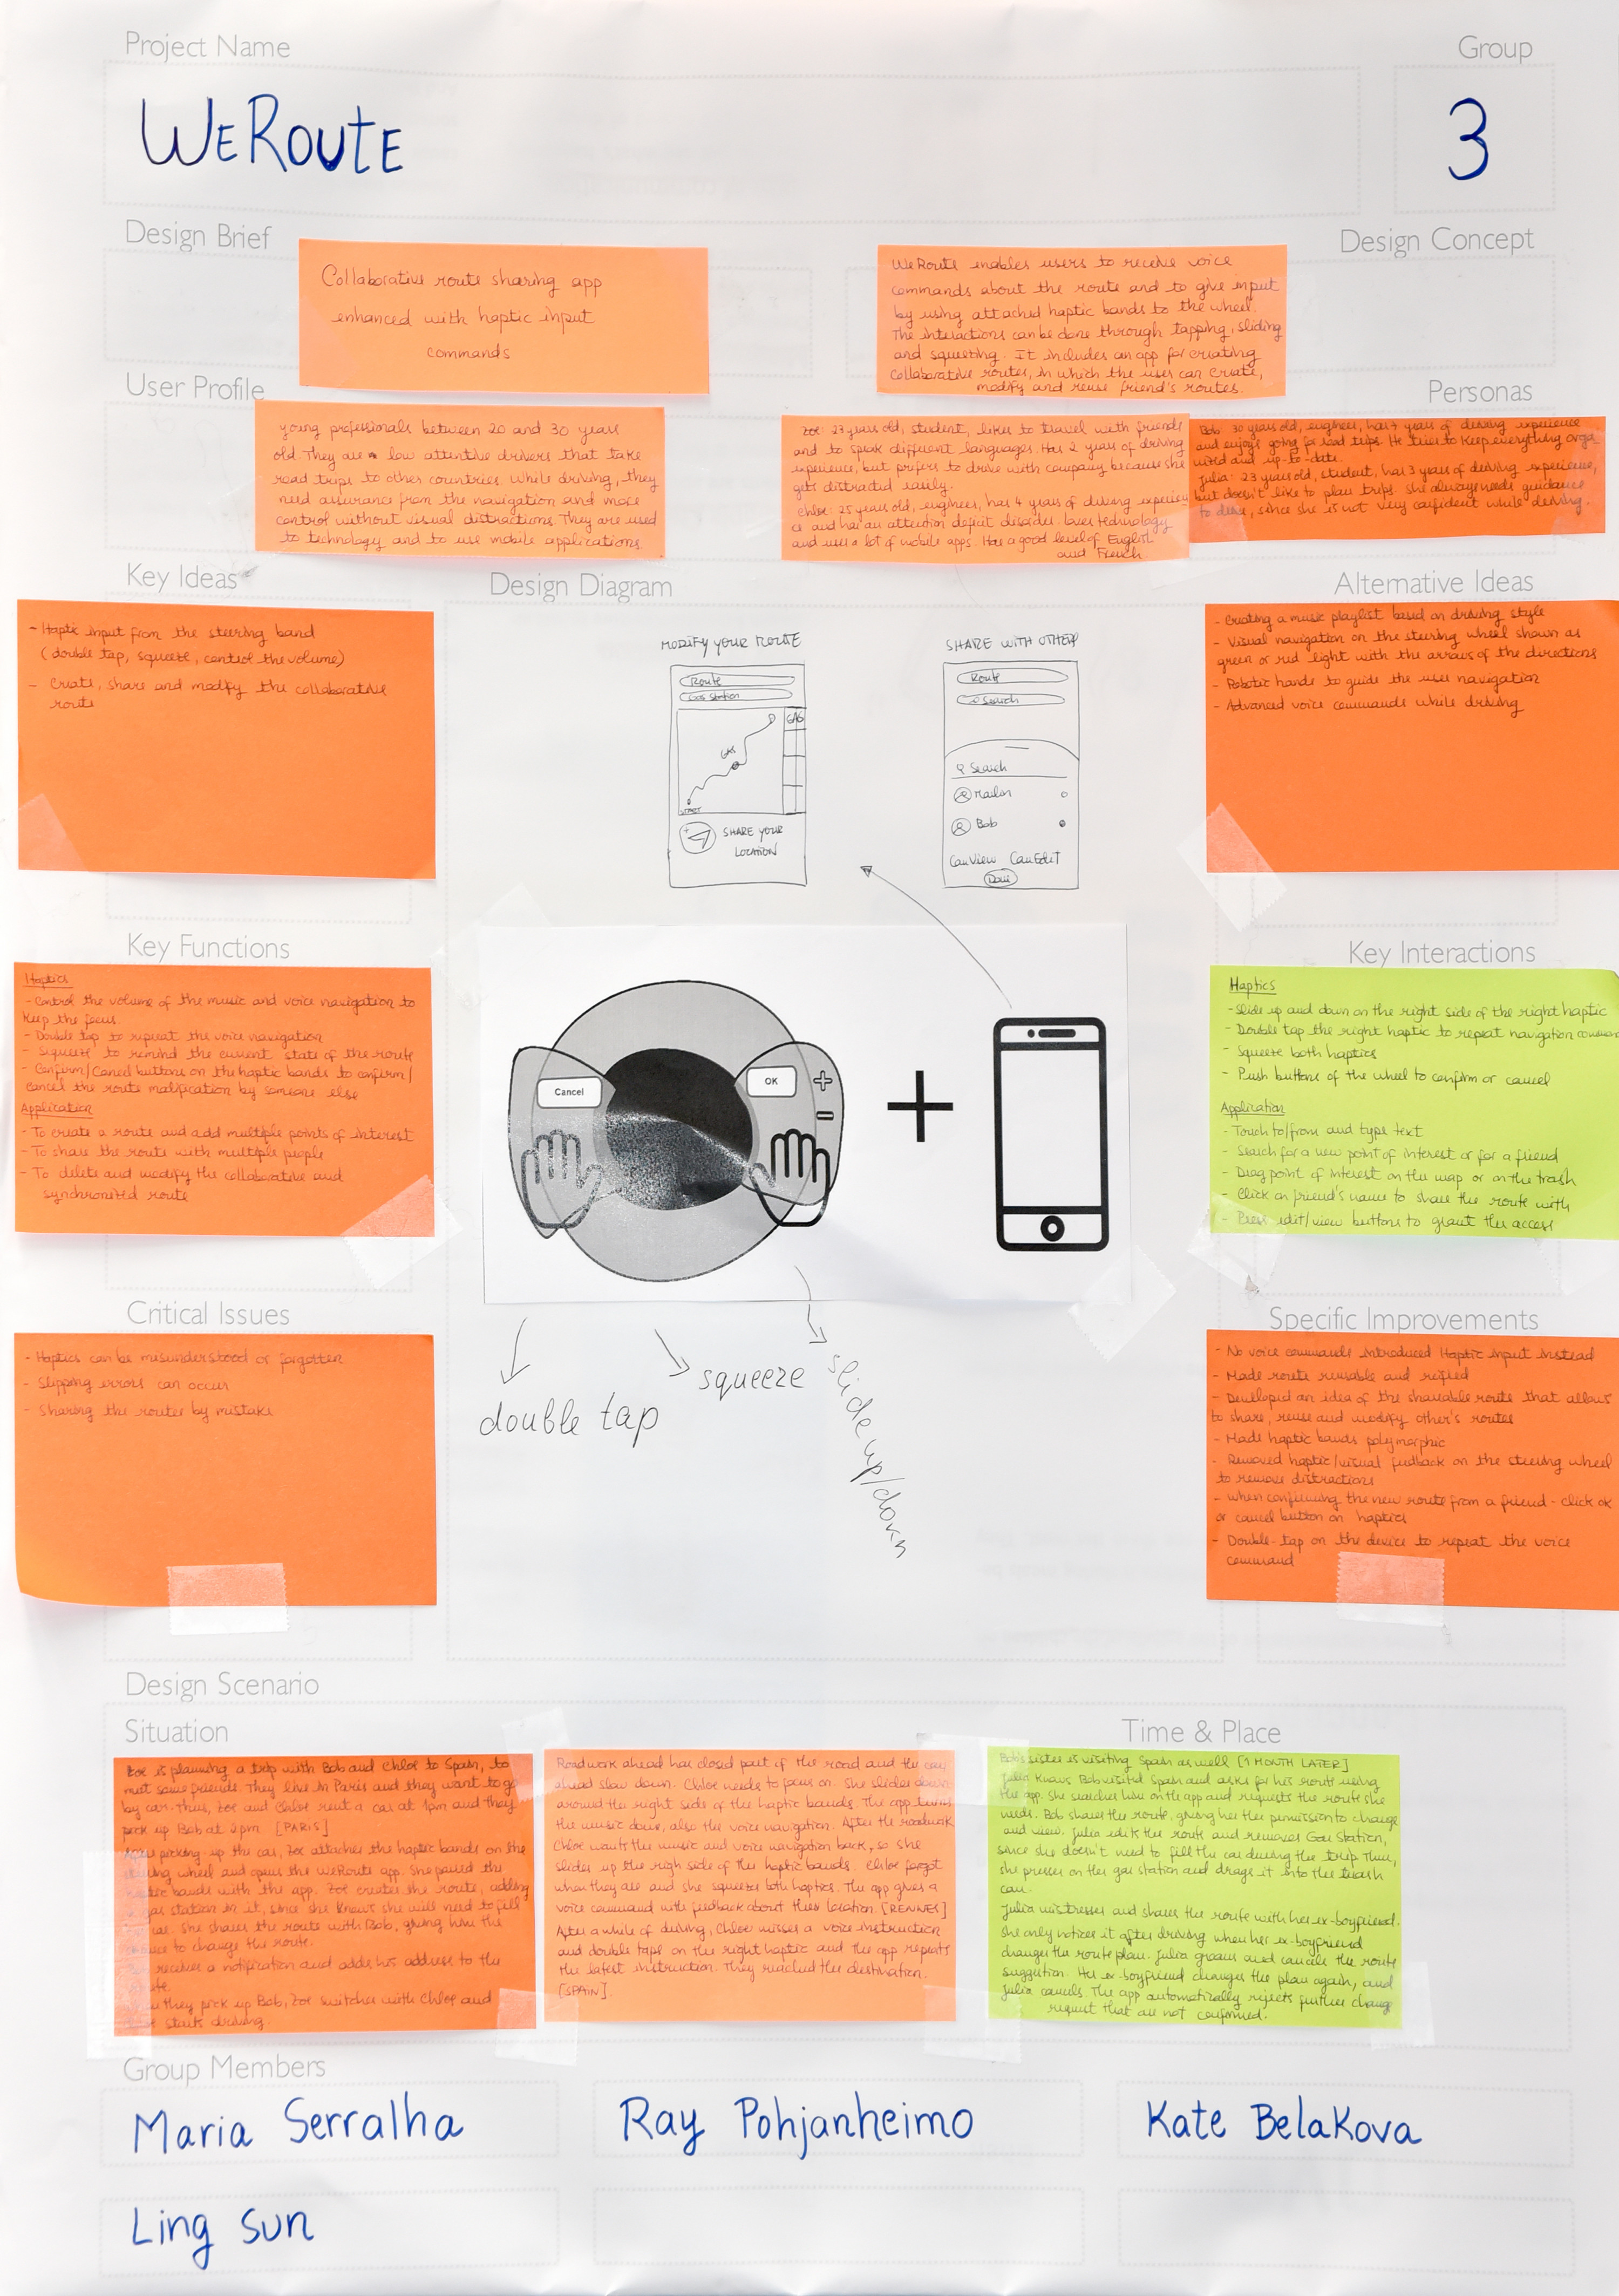 Project Name
Group
WEROUTE
3
Design Brief
Design Concept
Collaborative route sharing app
enhanced with haptic input
commands
WeRoute enables users to receive voice
commands about the route and to give input
by using attached haptic bands to the wheel.
The interactions can be done through tapping, sliding
and squeezing. It includes an app for creating
collaborative routes, in which the user can create,
modify and reuse friend's routes.
User Profile
Personas
young professionals between 20 and 30 years
old. They are low attentive drivers that take
road trips to other countries. While driving, they
need assurance from the navigation and more
control without visual distractions. They are used
to technology and to use mobile applications.
Zoe: 23 years old, student, likes to travel with friends
and to speak different languages. Has 2 years of driving
experience, but prefers to drive with company because she
gets distracted easily.
Chloe: 25 years old, engineer, has 4 years of driving experien
ce and has an attention deficit disorder. Loves technology
and uses a lot of mobile apps. Has a good level of English
and French
Bob: 30 years old, engineer, has 7 years of driving experience
and enjoys going for road trips. He tries to keep everything orga
nized and up-to-date.
Julia: 23 years old, student, has 3 years of driving experience,
but doesn't like to plan trips. She always needs guidance
to drive, since she is not very confident while driving.
Key Ideas
Design Diagram
Alternative Ideas
- Haptic input from the steering band
(double tap, squeeze, control the volume)
- Create, share and modify the collaborative
route
MODIFY YOUR ROUTE
Route
Gas Station
GAS
GAS
START
SHARE YOUR
LOCATION
SHARE WITH OTHER
Route
Search
Search
Bob
Can View Can Edit
Done
- Creating a music playlist based on driving style
- Visual navigation on the steering wheel shown as
green or red light with the arrows of the directions
- Robotic hands to guide the user navigation
- Advanced voice commands while driving
Key Functions
Key Interactions
Haptics
- Control the volume of the music and voice navigation to
keep the focus.
- Double tap to repeat the voice navigation
- Squeeze to remind the current state of the route
- Confirm/Cancel buttons on the haptic bands to confirm/
cancel the route modification by someone else
Application
- To create a route and add multiple points of interest
- To share the route with multiple people
- To delete and modify the collaborative and
synchronized route
Cancel
OK
+
−
+
Haptics
- Slide up and down on the right side of the right haptic
- Double tap the right haptic to repeat navigation
- Squeeze both haptics
- Push buttons of the wheel to confirm or cancel
Application
- Touch to/from and type text
- Search for a new point of interest or for a friend
- Drag point of interest on the map or on the trash
- Click on friend's name to share the route with
- Press edit/view buttons to grant the access
Critical Issues
Specific Improvements
- Haptics can be misunderstood or forgotten
- Slipping errors can occur
- Sharing the routes by mistake
double tap
squeeze
slide up/down
- No voice commands introduced Haptic input instead
- Made route reusable and
- Developed an idea of the shareable route that allows
to share, reuse and modify other's routes
- Made haptic bands polymorphic
- Removed haptic/visual feedback on the steering wheel
to remove distractions
- When confirming the new route from a friend - click ok
or cancel button on haptics
- Double-tap on the device to repeat the voice
command
Design Scenario
Situation
Time & Place
Zoe is planning a trip with Bob and Chloe to Spain, to
meet some friends. They live in Paris and they want to go
by car. Thus, Zoe and Chloe rent a car at 1pm and they
pick up Bob at 2pm [PARIS]
After picking up the car, Zoe attaches the haptic bands on the
wheel and opens the WeRoute app. She paired the
bands with the app. Zoe creates the route, adding
gas station in it, since she knows she will need to fill
car. She shares the route with Bob, giving him the
to change the route.
receives a notification and adds his address to the
they pick up Bob, Zoe switches with Chloe and
starts driving.
Roadwork ahead has closed part of the road and the car
ahead slow down. Chloe needs to focus on. She slides down
around the right side of the haptic bands. The app turns
the music down, also the voice navigation. After the roadwork
Chloe wants the music and voice navigation back, so she
slides up the righ side of the haptic bands. Chloe forgot
where they are and she squeezes both haptics. The app gives a
voice command with feedback about their location. [RENNES]
After a while of driving, Chloe misses a voice instruction
and double taps on the right haptic and the app repeats
the latest instruction. They reached the destination.
[SPAIN].
Bob's sister is visiting Spain as well [1 MONTH LATER]
Julia knows Bob visited Spain and asks for his route using
the app. She searches him on the app and requests the route she
needs. Bob shares the route, giving her the permission to change
and view. Julia edits the route and removes Gas Station,
since she doesn't need to fill the car during the trip. Thus,
she presses on the gas station and drags it into the trash
can.
Julia mistresses and shares the route with her ex-boyfriend.
She only notices it after driving when her ex-boyfriend
changes the route plan. Julia groans and cancels the route
suggestion. Her ex-boyfriend changes the plan again, and
Julia cancels. The app automatically rejects further change
request that are not confirmed.
Group Members
Maria Serralha
Ray Pohjanheimo
Kate Belakova
Ling Sun